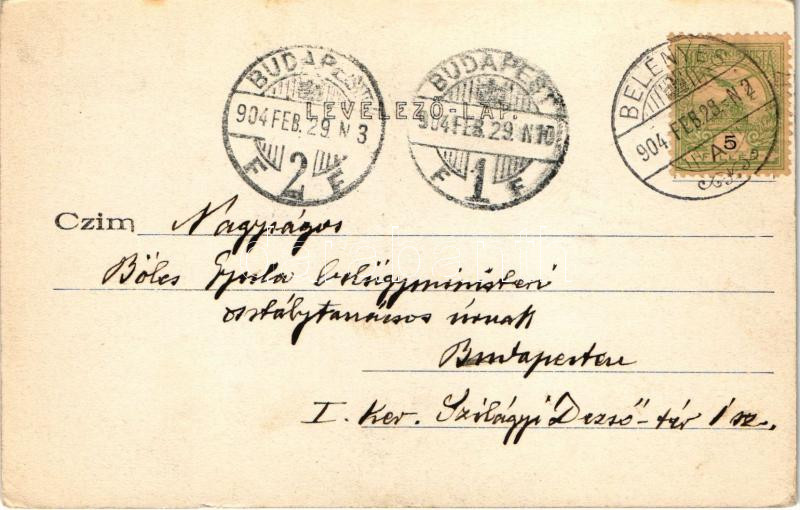 BUDAPEST
904 FEB. 29. N 3
F 2 F
BUDAPEST
904 FEB. 29. N 10
F 1 F
BELÉNYES
904 FEB. 28. N 2
A
5
LEVELEZŐ-LAP.
Czim Nagyságos
Bölcs Gyula belügyministeri
osztálytanácsos úrnak
Budapesten
I. Ker. Szilágyi Dezső-tér 1 sz.